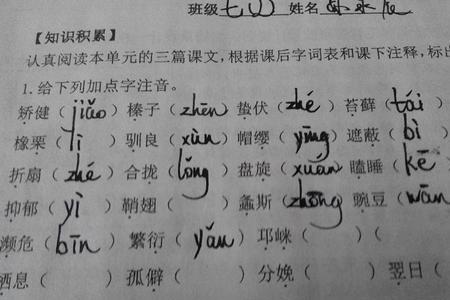 班级 七 姓名
【知识积累】
认真阅读本单元的三篇课文,根据课后字词表和课下注释,标出
1. 给下列加点字注音。
矫健(jiǎo)榛子(zhēn)蛰伏(zhé)苔藓(tái)
橡栗(lì)驯良(xùn)帽缨(yīng)遮蔽(bì)
折扇(zhé)合拢(lǒng)盘旋(xuán)瞌睡(kē
抑郁(yì)鞘翅()螽斯(zhōng)豌豆(wān
濒危(bīn)繁衍(yǎn)邛崃()(
栖息()孤僻()分娩()翌日(